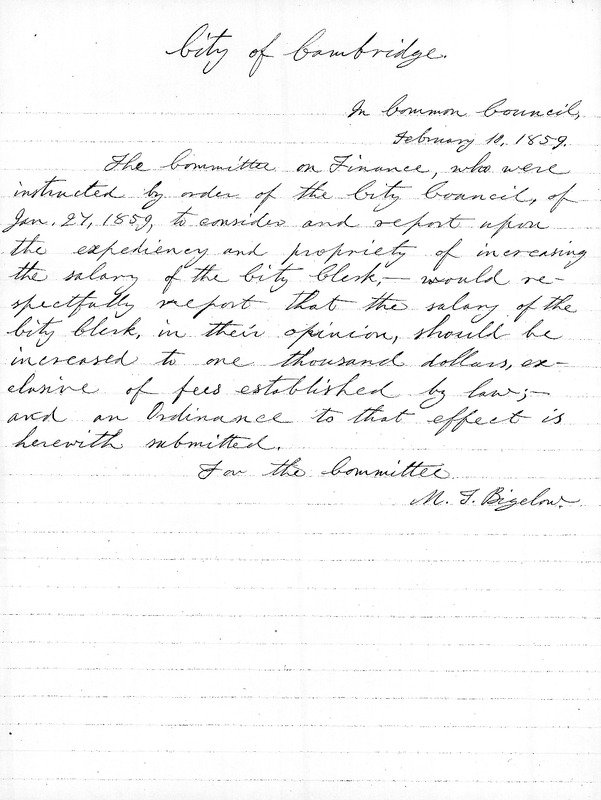 City of Cambridge.
In Common Council,
February 10, 1859.
The Committee on Finance, who were
instructed by order of the City Council, of
Jan. 27, 1859, to consider and report upon
the expediency and propriety of increasing
the salary of the City Clerk,— would re-
spectfully report that the salary of the
City Clerk, in their opinion, should be
increased to one thousand dollars, ex-
clusive of fees established by law;—
and an Ordinance to that effect is
herewith submitted.
For the Committee
M. T. Bigelow.